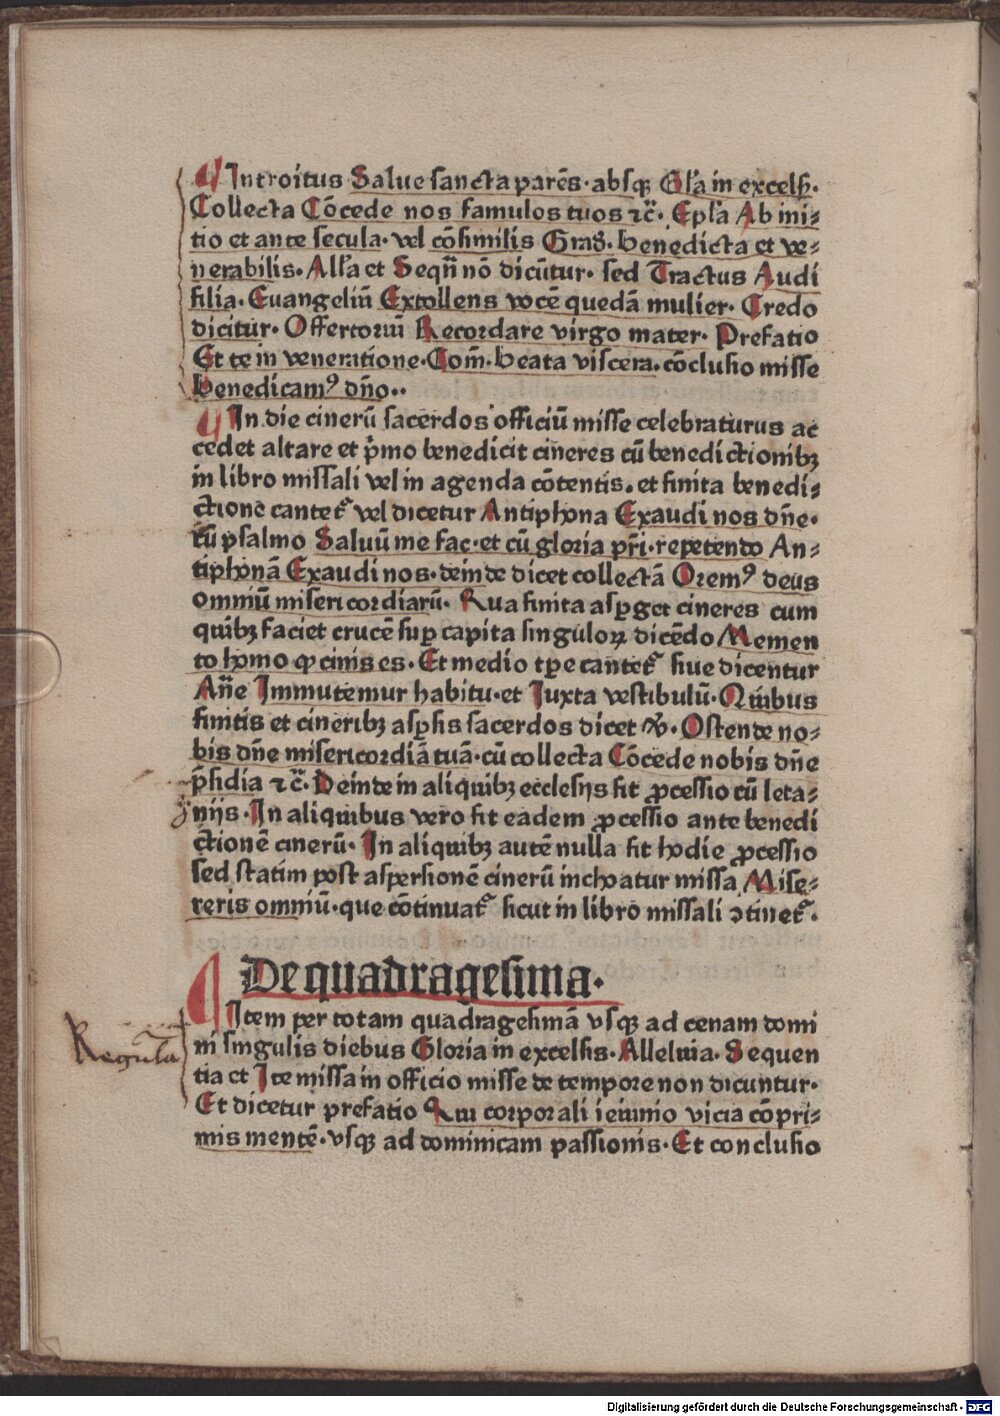 Introitus Salue sancta parēs· absqꝫ Gl'a in excelſ·
Collecta Cōcede nos famulos tuos ⁊c̄· Epl'a Ab ini⸗
tio et ante secula· vel cōsimilis Grad̄· benedicta et ve⸗
nerabilis· All'a et Seqn̄ nō dicūtur· sed Tractus Audi
filia· Euangeliū Extollens vocē quedā mulier· Credo
dicitur· Offertoriū Recordare virgo mater· Prefatio
Et te in veneratione· Com̄· beata viscera· cōclusio misse
benedicamꝰ dn̄o··
In die cinerū sacerdos officiū misse celebraturus ac
cedet altare et p̄mo benedicit cineres cū benedictionibꝫ
in libro missali vel in agenda cōtentis· et finita benedi⸗
ctione cantet᷑ vel dicetur Antiphona Exaudi nos dn̄e·
cū psalmo Saluū me fac· et cū gloria pr̄i· repetendo An⸗
tiphonā Exaudi nos· deinde dicet collectā Oremꝰ deus
omniū misericordiarū· Qua finita aspꝑget cineres cum
quibꝫ faciet crucē suꝑ capita singuloꝝ dicēdo Memen
to homo ꝙ cinis es· Et medio tꝑe cantet᷑ siue dicentur
An̄e Immutemur habitu· et Iuxta vestibulū· Quibus
finitis et cineribꝫ aspꝑsis sacerdos dicet ℣· Ostende no⸗
bis dn̄e misericordiā tuā· cū collecta Cōcede nobis dn̄e
p̄sidia ⁊c̄· Deinde in aliquibꝫ ecclesijs fit ꝓcessio cū leta⸗
nijs· In aliquibus vero fit eadem ꝓcessio ante benedi
ctionē cinerū· In aliquibꝫ autē nulla fit hodie ꝓcessio
sed statim post aspersionē cinerū inchoatur missa Mise⸗
reris omniū· que cōtinuat᷑ sicut in libro missali ↄtinet᷑·
De quadragesima·
Item per totam quadragesimā vsqꝫ ad cenam domi
Regula
ni singulis diebus Gloria in excelsis· Alleluia· Sequen
tia et Ite missa in officio misse de tempore non dicuntur·
Et dicetur prefatio Qui corporali ieiunio vicia cōpri⸗
mis mentē· vsqꝫ ad dominicam passionis· Et conclusio
Digitalisierung gefördert durch die Deutsche Forschungsgemeinschaft - DFG